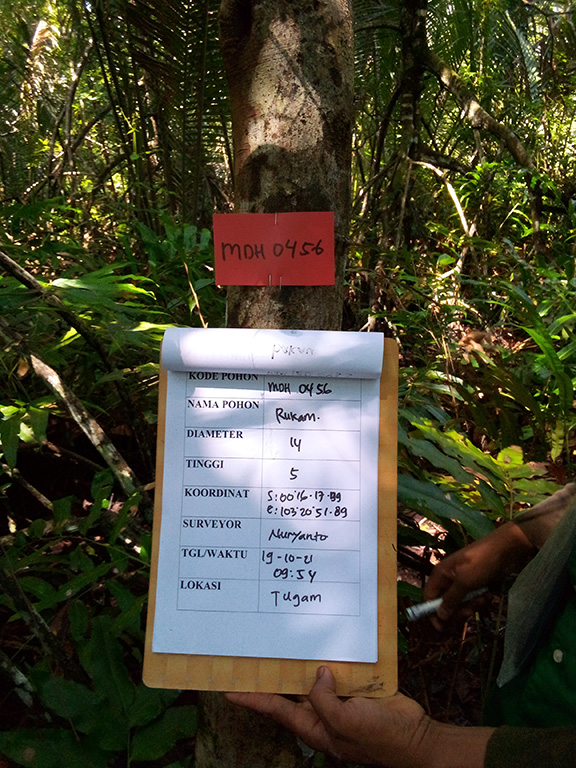 MDH 0456
KODE POHON MDH 0456
NAMA POHON Rukam.
DIAMETER 14
TINGGI 5
KOORDINAT S:00°16.17.99
E:103°20'51.89
SURVEYOR Nuryanto
TGL/WAKTU 19-10-21
09:54
LOKASI Tugam